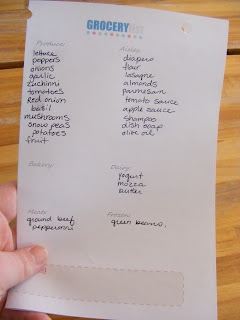 GROCERY LIST
Produce:
lettuce
peppers
onions
garlic
zucchinni
tomatoes
Red onion
basil
mushrooms
snow peas
potatoes
fruit
Aisles:
diapers
flour
lasagne
almonds
parmesan
tomato sauce
apple sauce
shampoo
dish soap
olive oil
Bakery:
Dairy:
yogurt
mozza
butter
Meats:
ground beef
pepperonni
Frozen:
green beans